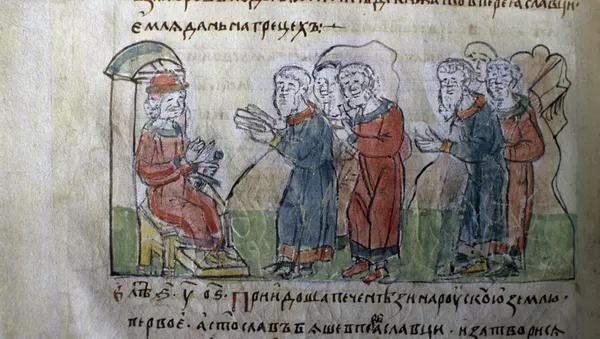 переꙗславци
ємлѧ дань на грецехъ:
В лѣт ҂ѕ · у · о ѕ · Приидоша печенѣзи на роускоую землю ·
первоє · а стославъ бѧше в переславци · и затворисѧ